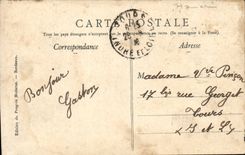 CARTE POSTALE
Tous les pays étrangers n'acceptent pas la correspondance au recto. (Se renseigner à la Poste).
Correspondance
Adresse
Bonjour
Gaston
Madame Vve Pinçon
17 bis rue Georget
Tours
I et L